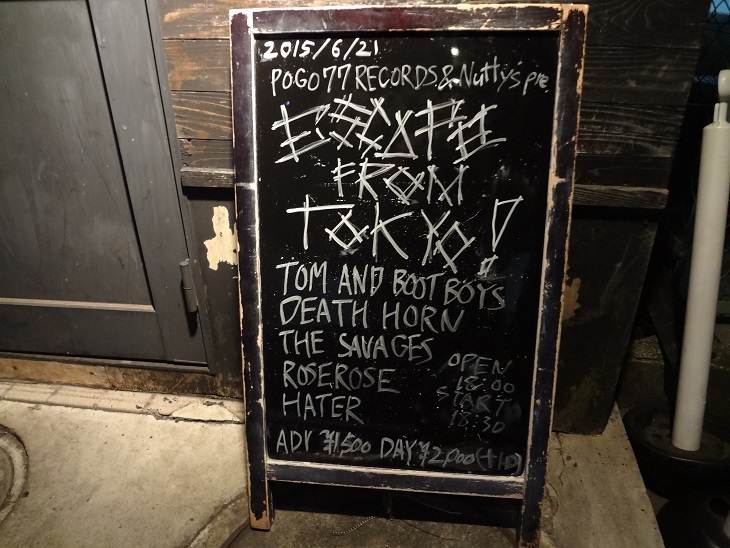 2015/6/21
POGO77 RECORDS & Nutty's pre.
ESCAPE
FROM
TOKYO!
TOM AND BOOT BOYS
DEATH HORN
THE SAVAGES
ROSEROSE
HATER
OPEN
18:00
START
18:30
ADV ¥1,500 DAY ¥2,000 (+1D)